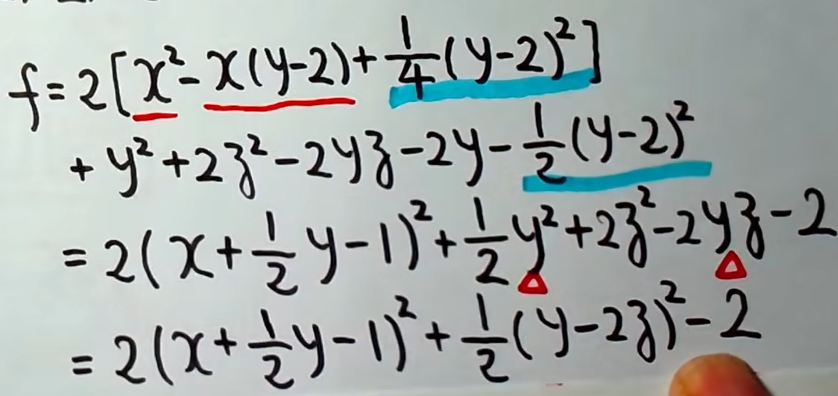 f=2[x²-x(y-2)+1/4(y-2)²]
+y²+2z²-2yz-2y-1/2(y-2)²
=2(x+1/2y-1)²+1/2y²+2z²-2yz-2
=2(x+1/2y-1)²+1/2(y-2z)²-2